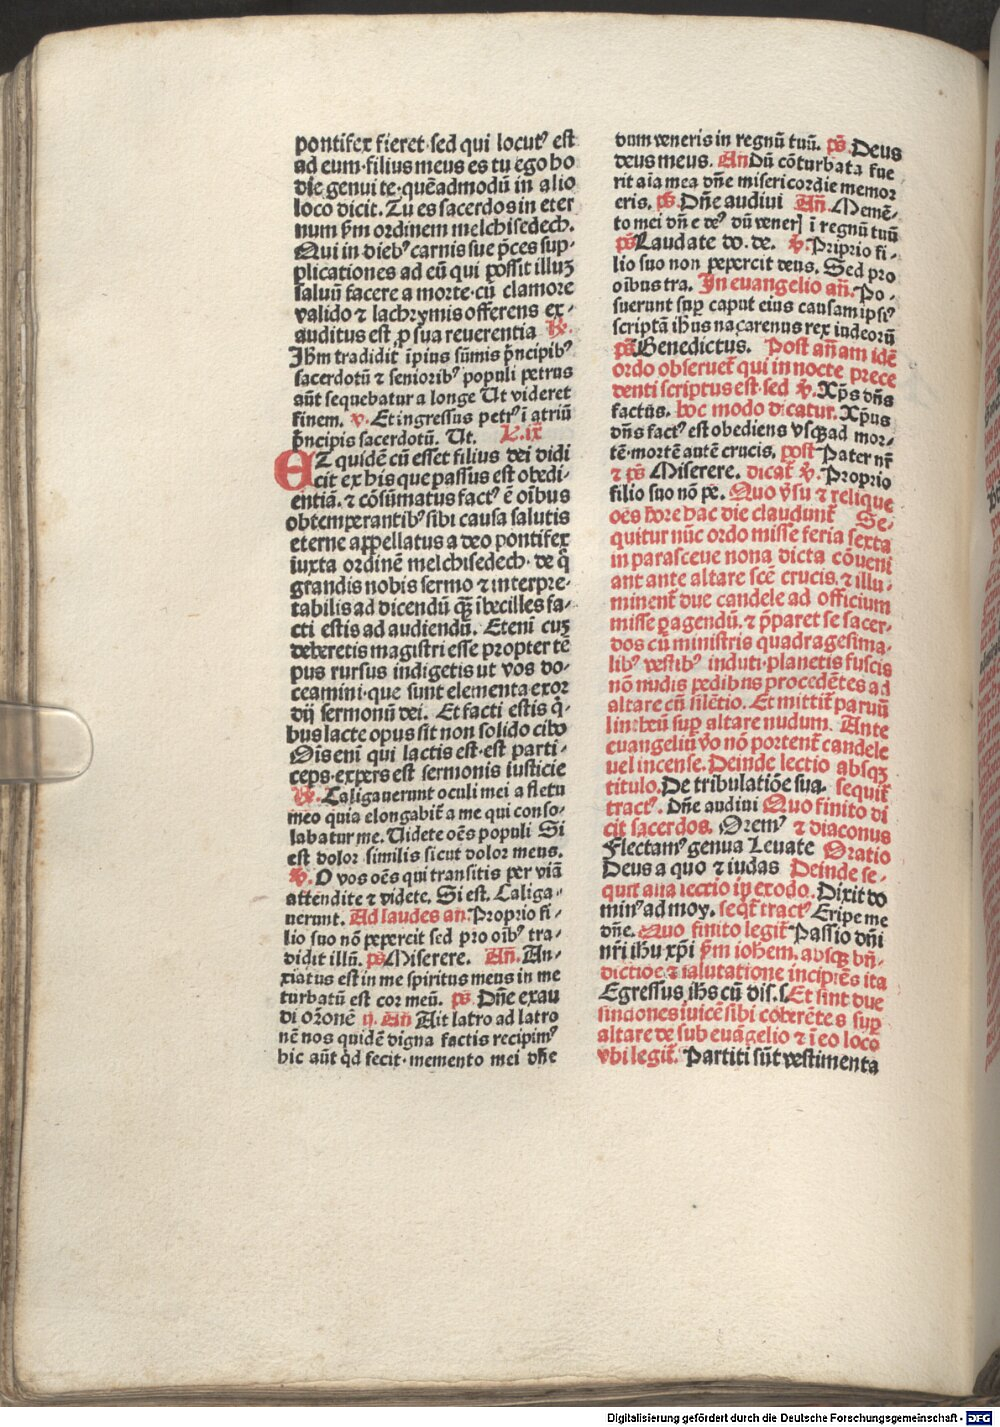 pontifex fieret·sed qui locutꝰ est
ad eum·filius meus es tu ego ho
die genui te·quēadmodū in alio
loco dicit. Tu es sacerdos in eter
num ẜm ordinem melchisedech.
Qui in diebꝰ carnis sue p̄ces sup-
plicationes ad eū qui possit illuꝫ
saluū facere a morte·cū clamore
valido ⁊ lachrymis offerens ex-
auditus est ꝓ sua reuerentia ℟.
Jhm tradidit īpius sūmis p̄ncipibꝰ
sacerdotū ⁊ senioribꝰ populi petrus
aūt sequebatur a longe Ut videret
finem. v. Et ingressus petrꝰ ī atriū
p̄ncipis sacerdotū. Ut. L. ix
ET quidē cū esset filius dei didi
cit ex his que passus est obedi-
entiā. ⁊ cōsūmatus factꝰ ē oībus
obtemperantibꝰ sibi causa salutis
eterne appellatus a deo pontifex
iuxta ordinē melchisedech· de q̄
grandis nobis sermo ⁊ interpre-
tabilis ad dicendū qꝫ ībecilles fa-
cti estis ad audiendū. Etenī cuꝫ
deberetis magistri esse propter tē
pus rursus indigetis ut vos do-
ceamini·que sunt elementa exor
dij sermonū dei. Et facti estis q̄-
bus lacte opus sit non solido cibo
Oīs enī qui lactis est·est parti-
ceps·expers est sermonis iusticie
℟. Caligauerunt oculi mei a fletu
meo quia elongabit̄ a me qui conso-
labatur me. Uidete oēs populi Si
est dolor similis sicut dolor meus.
℣. O vos oēs qui transitis per viā
attendite ⁊ videte. Si est. Caliga-
uerunt. Ad laudes an. Proprio fi-
lio suo nō pepercit sed pro oībꝰ tra-
didit illū. ps̄ Miserere. An̄. An-
xiatus est in me spiritus meus in me
turbatū est cor meū. ps̄. Dn̄e exau
di or̄onē ij. An̄ Ait latro ad latro
nē nos quidē digna factis recipimꝰ
hic aūt qd̄ fecit·memento mei dn̄e
dum veneris in regnū tuū. ps̄. Deus
deus meus. An̄ Dū cōturbata fue
rit aīa mea dn̄e misericordie memor
eris. ps̄. Dn̄e audiui An̄. Memē-
to mei dn̄e deꝰ dū veneꝝ ī regnū tuū
ps̄ Laudate do. de. ℣. Priprio fi-
lio suo non pepercit deus. Sed pro
oībus tra. In euangelio an̄. Po-
suerunt suꝑ caput eius causam ipsiꝰ
scriptā ihus naçarenus rex iudeorū
ps̄ Benedictus. Post an̄am idē
ordo obseruet̄ qui in nocte prece
denti scriptus est·sed ℣. Xp̄s dn̄s
factus. hoc modo dicatur. Xp̄us
dn̄s factꝰ est obediens vsqꝫ ad mor-
tē·mortē autē crucis. post Pater nr̄
⁊ ps̄ Miserere. dicat̄ ℣. Proprio
filio suo nō pe. Quo v̄su ⁊ relique
oēs hore hac die claudunt̄ Se-
quitur nūc ordo misse feria sexta
in parasceue nona dicta cōueni
ant ante altare scē crucis. ⁊ illu-
minent̄ due candele ad officium
misse ꝑagendū. ⁊ p̄paret se sacer-
dos cū ministris quadragesima-
libꝰ vestibꝰ induti·planetis fuscis
nō nudis pedibus procedētes ad
altare cū silētio. Et mittit̄ paruū
lintheū suꝑ altare nudum. Ante
euangeliū v̄o nō portent̄ candele
uel incense. Deinde lectio absqꝫ
titulo. De tribulatiōe sua. sequit̄
tractꝰ. Dn̄e audiui Quo finito di
cit sacerdos. Oremꝰ ⁊ diaconus
Flectamꝰ genua Leuate Oratio
Deus a quo ⁊ iudas Deinde se-
quit̄ alia lectio in exodo. Dixit do
minꝰ ad moy. seqt̄ tractꝰ Eripe me
dn̄e. Quo finito legit̄ Passio dn̄i
nr̄i ihu xp̄i ẜm iohem. absqꝫ bn̄-
dictiōe ⁊ salutatione incipiēs ita
Egressus ihs cū dis. s. Et sint due
sindones iuicē sibi coherētes suꝑ
altare de sub euāgelio ⁊ ī eo loco
vbi legit̄. Partiti sūt vestimenta
Digitalisierung gefördert durch die Deutsche Forschungsgemeinschaft - DFG